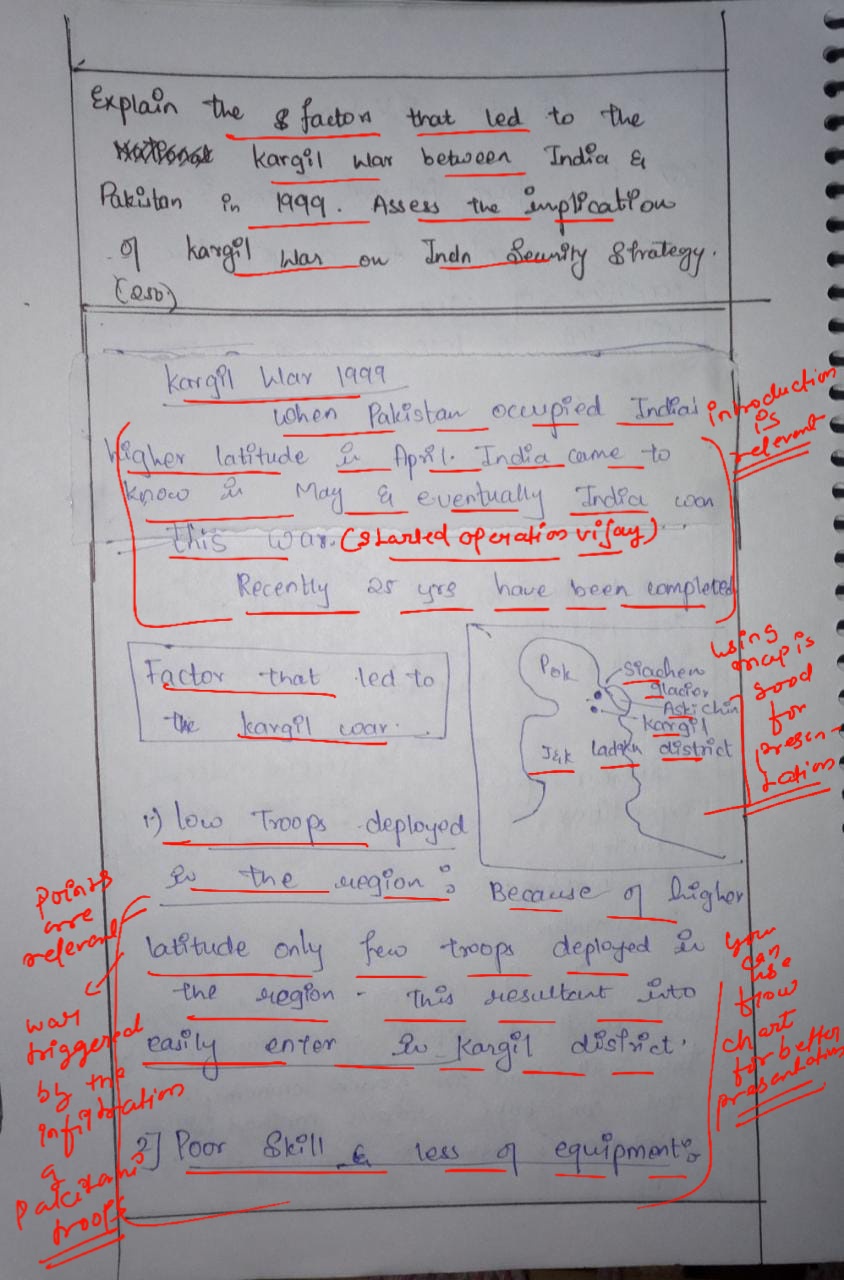 Explain the 8 factors that led to the
Kargil War between India &
Pakistan in 1999. Assess the implication
of Kargil War on Indn Security Strategy.
(250)
Kargil War 1999
When Pakistan occupied India's
higher latitude in April. India came to
know in May & eventually India won
this war. (started operation vijay)
Recently 25 yrs have been completed
introduction
is
relevant
Factor that led to
the Kargil war.
Pok
Siachen
glacior
Aski chin
Kargil
J&K Ladakh district
using
map is
good
for
presen-
tation
1.) low Troops deployed
in the region: Because of higher
latitude only few troops deployed in
the region - This resultant into
easily enter in Kargil district.
2] Poor Skill & less of equipment:
Points
are
relevant
war
triggered
by the
infiltration
of
Pakistani
troops
you
can
use
flow
chart
for better
presentation